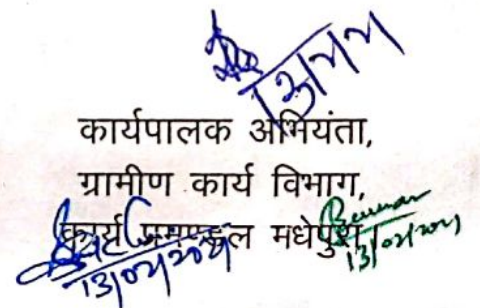 13/2/21
कार्यपालक अभियंता,
ग्रामीण कार्य विभाग,
कार्य प्रमण्डल मधेपुरा
13/02/2021
13/02/2021